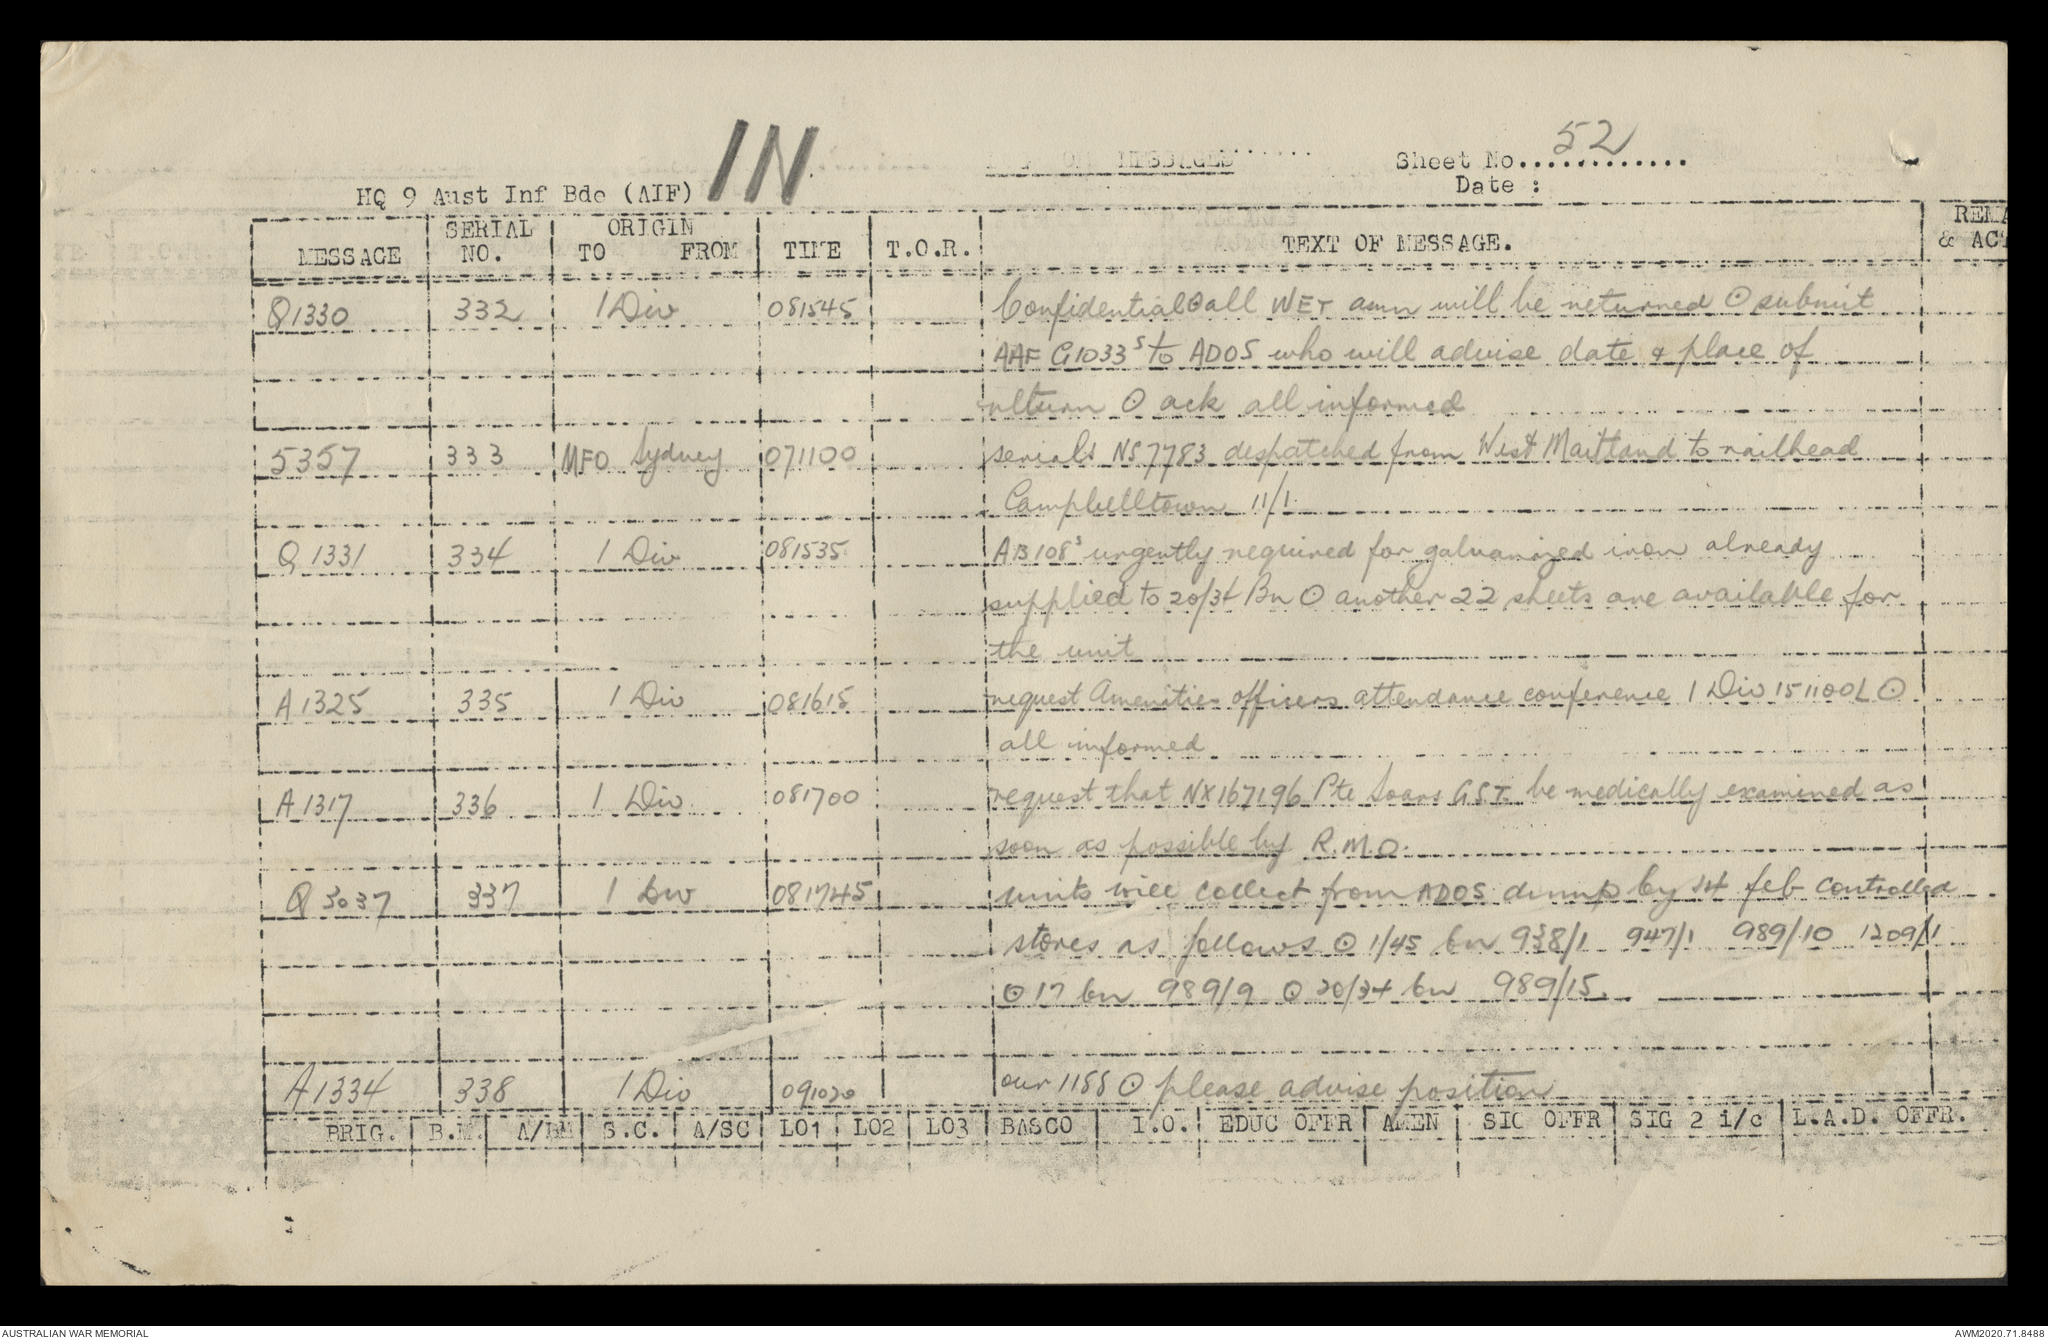 IN
MESSAGES
Sheet No............. 52
Date :
HQ 9 Aust Inf Bde (AIF)
MESSAGE SERIAL NO. ORIGIN TO FROM TIME T.O.R. TEXT OF MESSAGE. REMA & ACT
Q1330 332 1 Div 081545 Confidential ⊙ all WET amn will be returned ⊙ submit
AAF G1033s to ADOS who will advise date & place of
return ⊙ ack all informed
5357 333 MFO Sydney 071100 serials NS7783 despatched from West Maitland to railhead
Campbelltown 11/1
Q 1331 334 1 Div 081535 AB108s urgently required for galvanized iron already
supplied to 20/34 Bn ⊙ another 22 sheets are available for
the unit
A1325 335 1 Div 081615 request Amenities officers attendance conference 1 Div 151100L ⊙
all informed
A1317 336 1 Div 081700 request that NX167196 Pte Soars G.S.T. be medically examined as
soon as possible by R.M.O.
Q 3037 337 1 Div 081745 units will collect from ADOS dump by 14 feb controlled
stores as follows ⊙ 1/45 bn 938/1 947/1 989/10 1209/1
⊙ 17 bn 989/9 ⊙ 20/34 bn 989/15.
A1334 338 1 Div 091020 our 1188 ⊙ please advise position
BRIG. B.M. A/BM S.C. A/SC LO1 LO2 LO3 BASCO I.O. EDUC OFFR AMEN SIG OFFR SIG 2 i/c L.A.D. OFFR.
AUSTRALIAN WAR MEMORIAL AWM2020.71.8488